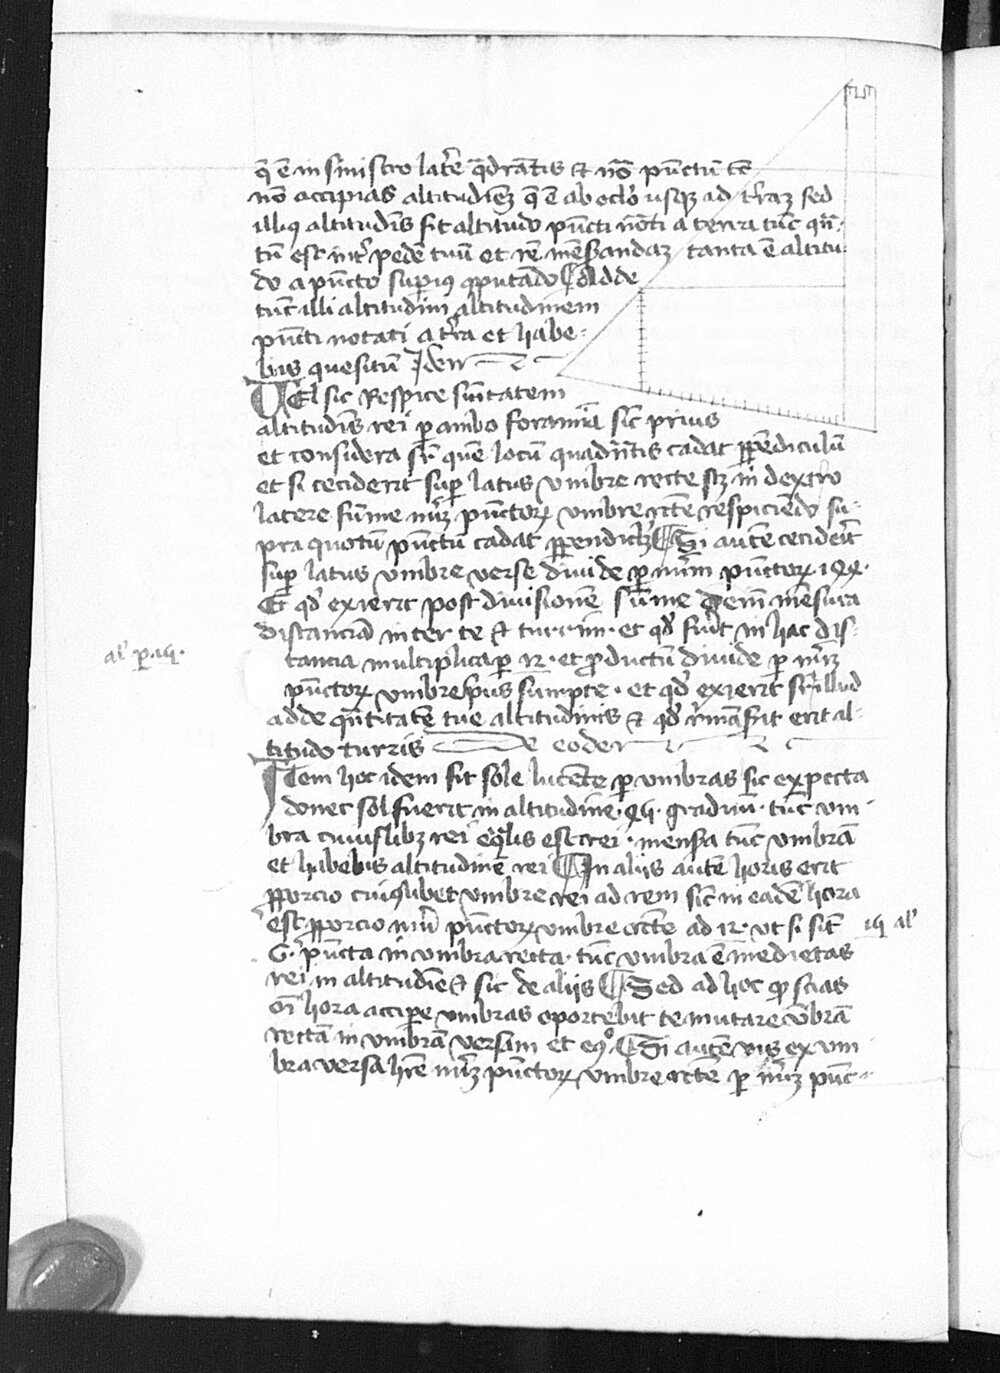 q̄ ē in sinistro latere q̄drātis et nō punctū tē
nō accipias altitudinē q̄ ē ab oclo usqꝫ ad trāꝫ sed
illiꝰ altitudīs sit altitudo pūcti nōti a terra tūc qn̄-
tū est int̄ pedē tuū et rē mēsurandaꝫ tanta ē altitu
do a pūcto superiꝰ ꝯputādo ¶ Adde
tūc illi altitudini altitudinem
pūcti notati a tr̄a et habe-
bis quesitū Idem
Vel sic Respice sūitatem
altitudīs rei ꝑ ambo foramīa sic̄ prius
et considera sr̄ quē locū quadrātis cadat ꝑpēdiculū
et si ceciderit suꝑ latus umbre recte scꝫ in dextro
latere sume nūꝫ pūctoꝝ umbre rc̄te respiciēdo su-
pra quotū punctū cadat ꝑpendiclꝫ ¶ Si autē cecideīt
suꝑ latus umbre verse divide ꝑ nūm punctoꝝ 144.
Et qd̓ exierit post divisionē sūme Deīn mēsura
distanciā inter te et turrim. et qd̓ fūit in hac dis-
al' ꝑ .14.
tancia multiplica ꝑ 12. et ꝓductū divide ꝑ nūꝫ
pūctoꝝ umbre priꝰ sumpte. et qd̓ exierit sr̄ illud
adde qn̄titatē tue altitudinis et qd̓ rēmāserit erit al-
titudo turris De eodem
Item hoc idem sit sole lucēte ꝑ umbras sic exꝑecta
donec sol fuerit in altitudine .45. graduū. tūc um-
bra cuiuslibꝫ rei eq̄lis est rei. mensa tūc umbrā
et habebis altitudinē rei ¶ In aliis autē horis erit
ꝓporcio cuiꝰlibet umbre rei ad rem sic̄ in eadē hora
est ꝓporcio nūi punctoꝝ umbre rc̄te ad 12. ut si sīt 14 al'
6. pūcta in umbra recta. tūc umbra ē medietas
rei in altitudīe et sic de aliis ¶ Sed ad hoc qꝫ scias
oī hora accipe umbras oportebit te mutare ūbrā
rectā in umbrā versam et eqͦ. ¶ Si autē vis ex um
bra versa hr̄e nūꝫ punctoꝝ umbre rc̄te ꝑ nūꝫ pūc-